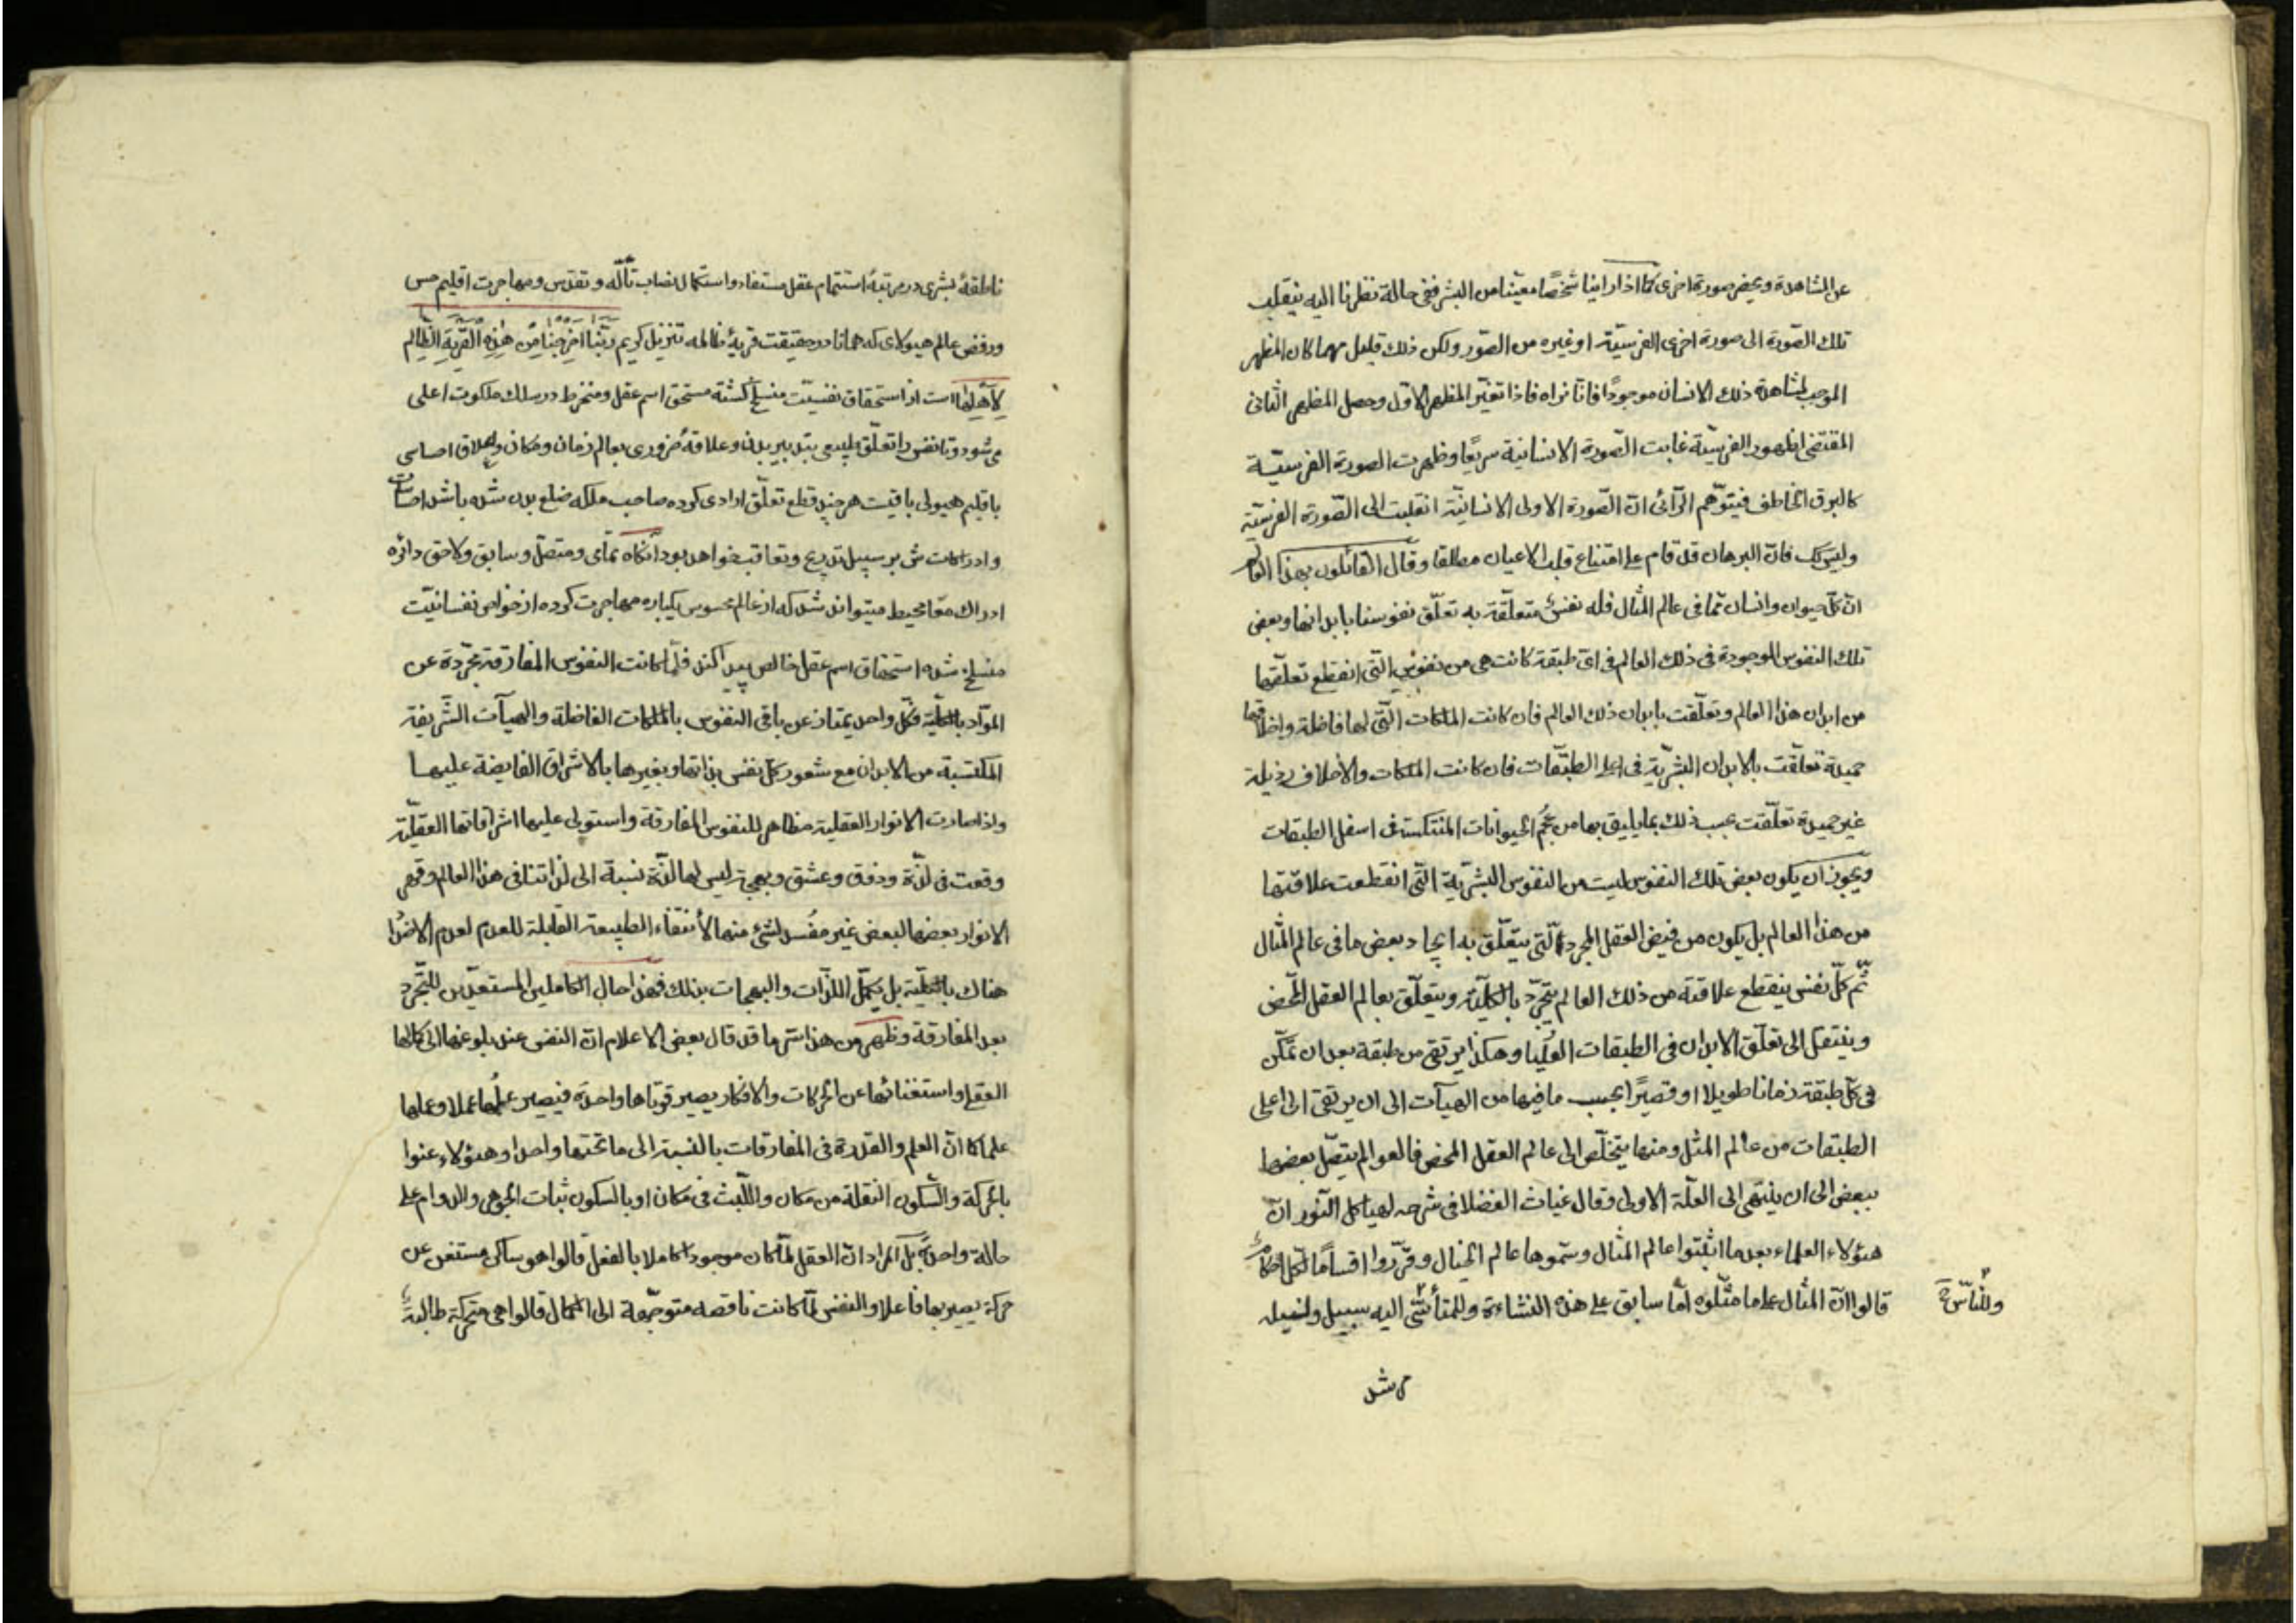 عن المشاهدة ويحضر صورة اخرى كما اذا راينا شخصًا معينًا من البشر ففى حالة نظرنا اليه ينقلب
تلك الصّورة الى صورة اخرى الفرسيّة او غيره من الصّور ولكن ذلك قليل مهما كان المظهر
الموجب لمشاهدة ذلك الانسان موجودًا فانّا نراه فاذا تغيّر المظهر الاوّل وحصل المظهر الثانى
المقتضى لظهور الفرسيّة غابت الصّورة الانسانية سريعًا وظهرت الصورة الفرسيّة
كالبرق الخاطف فيتوّهم الرّائى انّ الصّورة الاولى الانسانيّة انقلبت الى الصّورة الفرسيّة
وليس كك فانّ البرهان قد قام على امتناع قلب الاعيان مطلقا وقال القائلون بهذا العالم
انّ كلّ حيوان وانسان ممّا فى عالم المثال فله نفسٌ متعلّقة به تعلّق نفوسنا بابداننا وبعض
تلك النفوس الموجودة فى ذلك العالم فى اىّ طبقة كانت هى من نفوس التى انقطع تعلّقها
من ابدان هذا العالم وتعلّقت بابدان ذلك العالم فان كانت الملكات الّتى لها فاضلة واخلاقها
جميلة تعلّقت بالابدان البشريّة فى اعلى الطبقات فان كانت الملكات والاخلاق رذيلة
غير جميلة تعلّقت بحسب ذلك بما يليق بها من عُجُم الحيوانات المنتكسة فى اسفل الطبقات
ويجوز ان يكون بعض تلك النفوس ليست من النفوس البشريّة الّتى انقطعت علاقتها
من هذا العالم بل يكون من فيض العقل المجرد الّتى يتعلّق به ايجاد بعض ما فى عالم المثال
ثمّ كلّ نفس ينقطع علاقته من ذلك العالم يتجرّد بالكليّة ويتعلّق بعالم العقل المحض
وينتقل الى تعلّق الابدان فى الطبقات العُليا وهكذا يرتقى من طبقة بعد ان تمكّن
فى كلّ طبقة زمانا طويلا او قصيرًا بحسب ما فيها من الهيآت الى ان يرتقى الى اعلى
الطبقات من عالم المثل ومنها يتخلّص الى عالم العقل المحض فالعوالم يتصّل بعضها
ببعض الى ان ينتهى الى العلّة الاولى وقال غياث الفضلا فى شرحه لهياكل النّور انّ
هؤلاء العلماء بعد ما اثبتوا عالم المثال وسمّوها عالم الخيال وقرّروا اقسامًا لكل احكام
قالوا انّ المثال على ما مثّلوه امّا سابق على هذه النشاءة وللمتألّهين اليه سبيل
ناطقهٔ بشرى در مرتبهٔ استتمام عقل مستفاد واستكمال نصاب تألّه وتقدّس ومهاجرت اقليم حس
ورفض عالم هيولاى كه همانا در حقيقت قريهٔ ظالمه تنزيل كريم ربّنا اخرجنا من هذه القرية الظالم
لاهلها است از استحقاق نفسيّت منسلخ گشته مستحق اسم عقل ومنخرط در سلك ملكوت اعلى
مى شود وتا نفس را تعلّق طبيعى بتدبير بدن وعلاقهٔ ضرورى بعالم زمان ومكان وعلاق احساسى
باقليم هيولى باقيست هر چند قطع تعلّق ارادى كرده صاحب ملكه خلع بدن شده باشد احساسات
وادراكات ش بر سبيل تدريج وتعاقب خواهد بود آنگاه تمادى ومتصل وسابق ولاحق دائره
ادراك معًا محيط ميتواند شد كه از عالم محسوس يكباره مهاجرت كرده از خواص نفسانيّت
منسلخ شده استحقاق اسم عقل خالص پيدا كند فلمّا كانت النفوس المفارقة مجرّدة عن
الموّاد بالكليّة فكلّ واحد يمتاز عن باقى النفوس بالملكات الفاضلة والهيآت الشّريفة
المكتسبة من الابدان مع شعور كلّ نفس بذاتها وبغيرها بالاشراق الفايضة عليها
واذا صارت الانوار العقلية مظاهر للنفوس المفارقة واستولى عليها اشراقاتها العقليّة
وقعت فى لذّة وذوق وعشق وبهجة ليس لها لذّة نسبة الى لذاتنا فى هذا العالم وقهر
الانوار بعضها لبعض غير مفسد لشئ منها لأنتفاء الطبيعة القابلة للعدم لعدم الاضداد
هناك بالكليّة بل يكمّل اللذّات والبهجات بذلك فهذا حال الكاملين المستعدّين للتّجرّد
بعد المفارقة وظهر من هذا سّر ما قد قال بعض الاعلام انّ النفس عند بلوغها الى كمالها
العقلى واستغنائها عن الحركات والافكار يصير قوتاها واحدة فيصير علمها عملا وعملها
علما كما انّ العلم والقدرة فى المفارقات بالنسبة الى ما تحتها واحد وهؤلاء عنوا
بالحركة والسّكون النقلة من مكان واللّبث فى مكان او بالسكون ثبات الجوهر والدوام على
حالة واحدة بل المراد انّ العقل لمّا كان موجودًا كاملا بالفعل قالوا هو ساكن مستغن عن
حركة يصير بها فاعلا والنفس لمّا كانت ناقصه متوجّهة الى الكمال قالوا هى متحركة طالبة